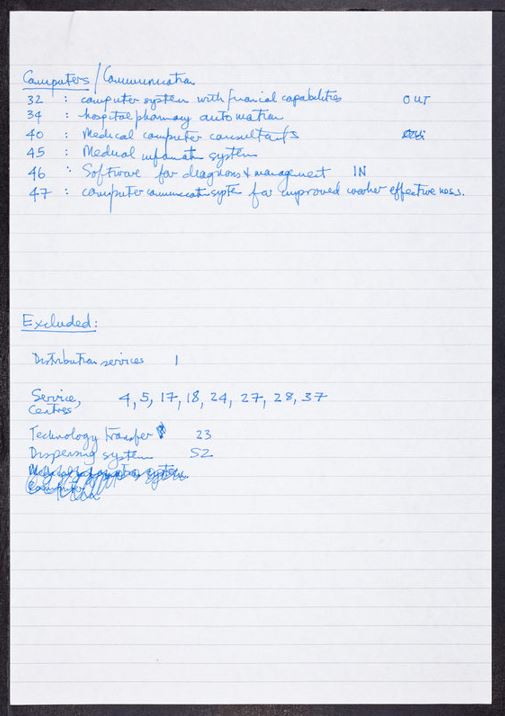 Computers/Communication
32 : computer system with financial capabilities OUT
34 : hospital pharmacy automation
40 : Medical computer consultants
45 : Medical informat. system
46 : Software for diagnosis & management IN
47 : computer communicat. system for improved worker effectiveness.
Excluded:
Distribution services 1
Service, 4, 5, 17, 18, 24, 27, 28, 37
Centres
Technology transfer 23
Dispensing system 52